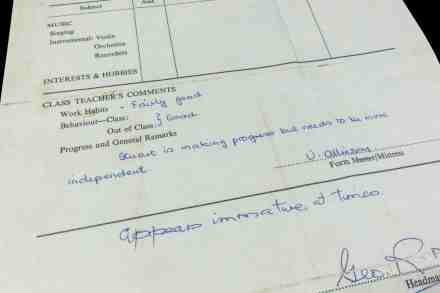 Subject
And
MUSIC
Singing
Instrumental: Violin
Orchestra
Recorders
INTERESTS & HOBBIES
CLASS TEACHER'S COMMENTS
Work Habits - Fairly good
Behaviour—Class: } Good
Out of Class:
Progress and General Remarks
Stuart is making progress but needs to be more
independent
Form Master/Mistress
appears immature at times
Geo. R.
Headma